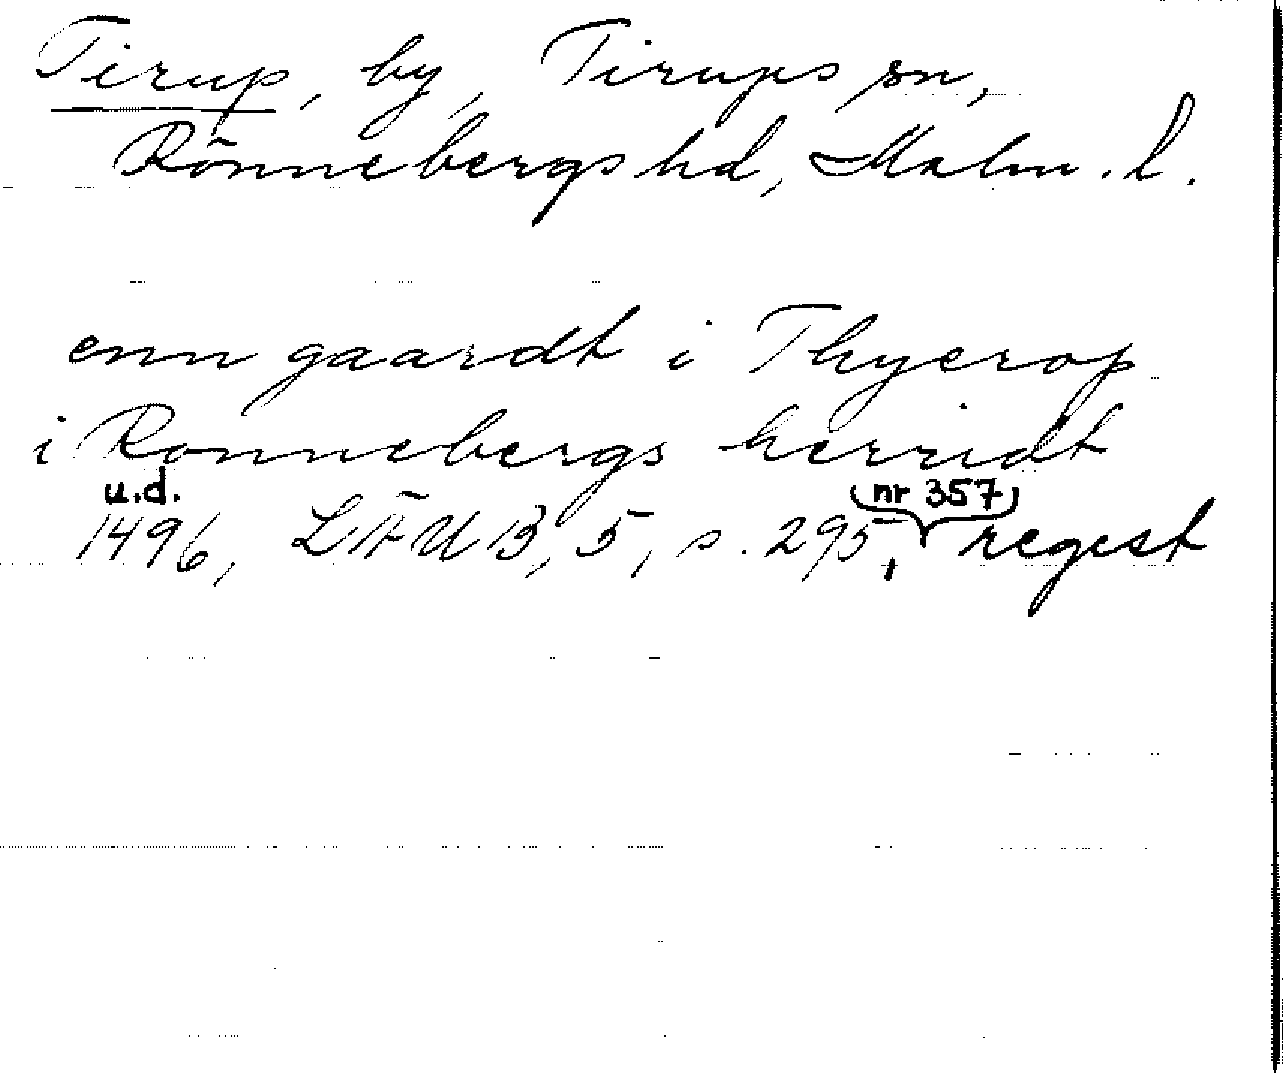 Tirup, by, Tirups sn,
Rönnebergs hd, Malm. l.
enn gaardt i Thyerop
i Ronnebergs herridt
u.d. (nr 357)
1496, LÄUB, 5, s. 295, regest